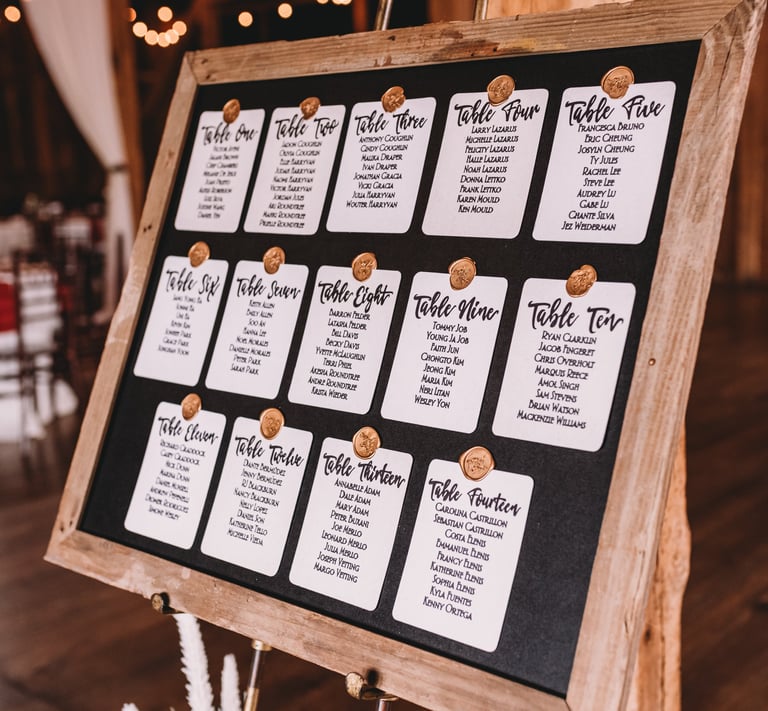 Table One
Jamie Brown
Chip Chambers
Melanie De Jesus
Juan Prieto
Alyse Roberson
Luis Silva
Josephe Wang
Daniel Yen
Table Two
Jadon Coughlin
Olivia Coughlin
Ellie Harryvan
Judah Harryvan
Naomi Harryvan
Victor Harryvan
Jordan Jules
Ari Roundtree
Mabri Roundtree
Table Three
Anthony Coughlin
Cindy Coughlin
Malika Draper
Ivan Draper
Jonathan Gracia
Vicki Gracia
Julia Harryvan
Wouter Harryvan
Table Four
Larry Lazarus
Michelle Lazarus
Felicity Lazarus
Halle Lazarus
Noah Lazarus
Donna Lettko
Frank Lettko
Karen Mould
Ken Mould
Table Five
Francesca Bruno
Eric Cheung
Josyln Cheung
Ty Jules
Rachel Lee
Steve Lee
Audrey Lu
Gabe Lu
Chante Silva
Jez Weiderman
Table Six
Sang Yong Ba
Sunmi Ba
Uni Ba
Kevin Kim
Sunhee Park
Grace Park
Sunghan Yoon
Table Seven
Keith Allen
Emily Allen
Soo An
Hanna Lee
Noel Morales
Danielle Morales
Peter Park
Sarah Park
Table Eight
Barron Felder
Latasha Felder
Bill Davis
Becky Davis
Yvette McLaughlin
Terri Phiel
Aresha Roundtree
Andre Roundtree
Krista Wieder
Table Nine
Tommy Job
Young Ja Job
Faith Jun
Chongto Kim
Jeong Kim
Maria Kim
Neri Litan
Wesley Yon
Table Ten
Ryan Clarklin
Jacob Fingeret
Chris Overholt
Marquis Reece
Amol Singh
Sam Stevens
Brian Watson
Mackenzie Williams
Table Eleven
Richard Craddock
Cary Craddock
Nick Dunn
Marina Dunn
Daniel Monsell
Andrew Pifferelli
Diomer Rodriguez
Simone Wesley
Table Twelve
Dante Bermudez
Jenny Bermudez
RJ Blackburn
Nancy Blackburn
Nelly Lopez
Daniel Son
Katherine Tello
Michelle Vieda
Table Thirteen
Annabelle Adam
Dale Adam
Mary Adam
Peter Butani
Joe Merlo
Leonard Merlo
Julia Merlo
Joseph Vetting
Margo Vetting
Table Fourteen
Carolina Castrillon
Sebastian Castrillon
Costa Elenis
Emmanuel Elenis
Francy Elenis
Katherine Elenis
Sophia Elenis
Kyla Fuentes
Kenny Ortega